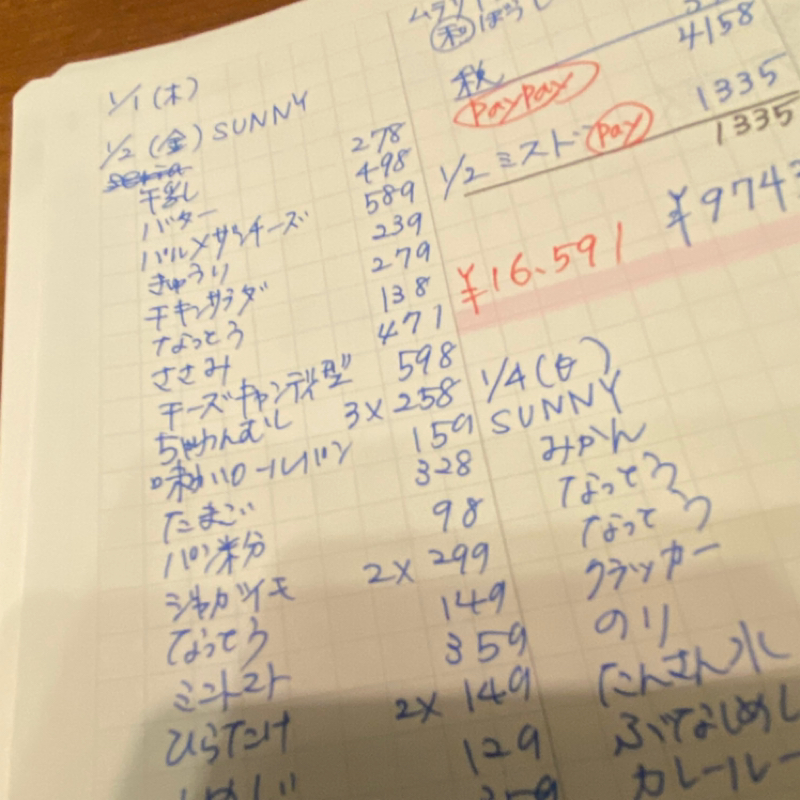 1/1(木)
1/2(金) SUNNY
278
バター 498
パルメザンチーズ 589
きゅうり 239
チキンサラダ 279
なっとう 138
ささみ 471
チーズキャンディ型 598
ちゃわんむし 3×258
ロールパン 159
たまご 328
パン粉 98
ジャガイモ 2×299
なっとう 149
ミニトマト 359
ひらたけ 2×149
129
4158
税
paypay 1335
1/2 ミスド pay 1335
¥16.591 ¥9743
1/4(日)
SUNNY
みかん
なっとう
なっとう
クラッカー
のり
たんさん水
ぶなしめじ
カレールー